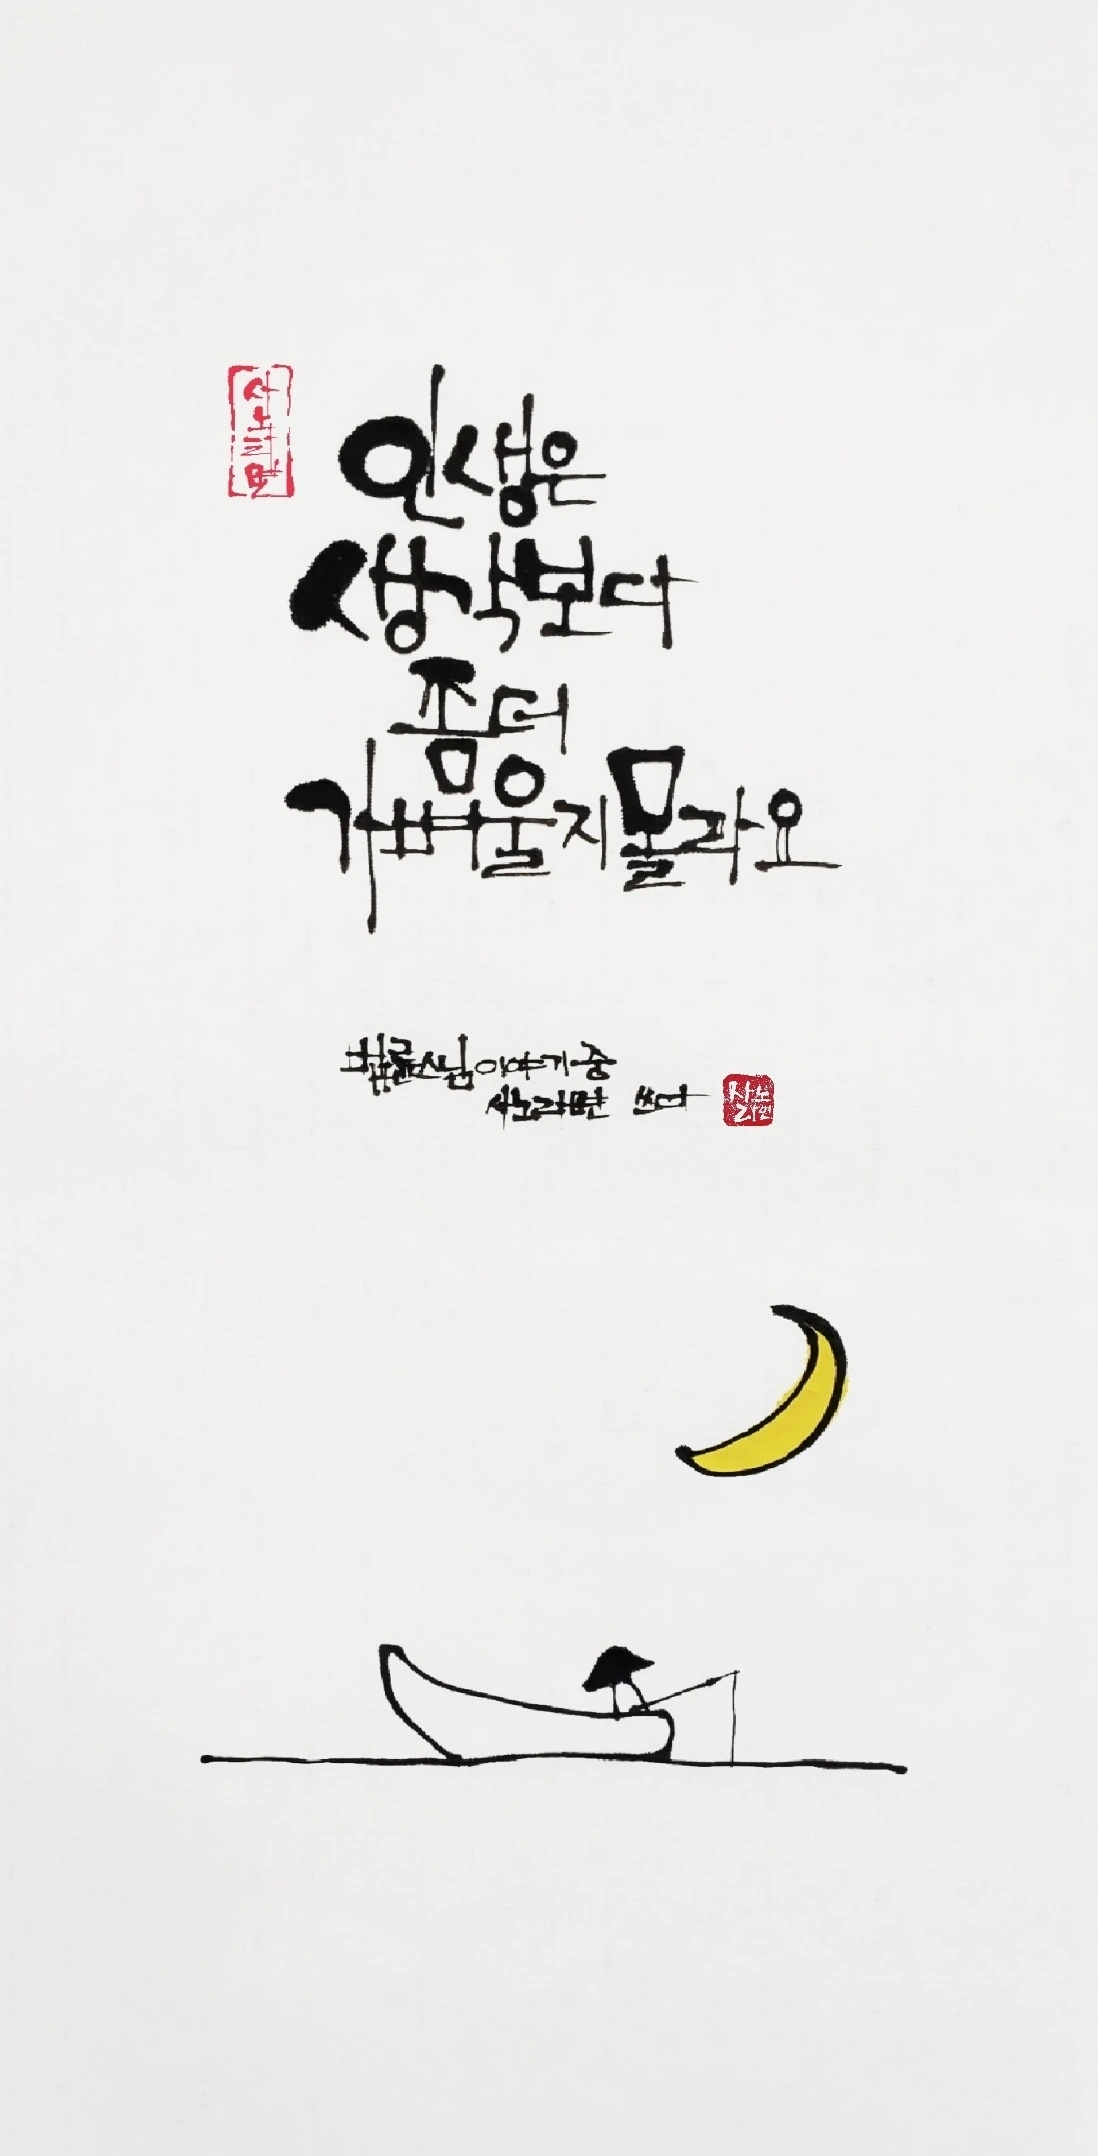 사노라면
인생은
생각보다
좀 더
가벼울지 몰라요
법륜스님 이야기 중
사노라면 쓰다
사노
라면